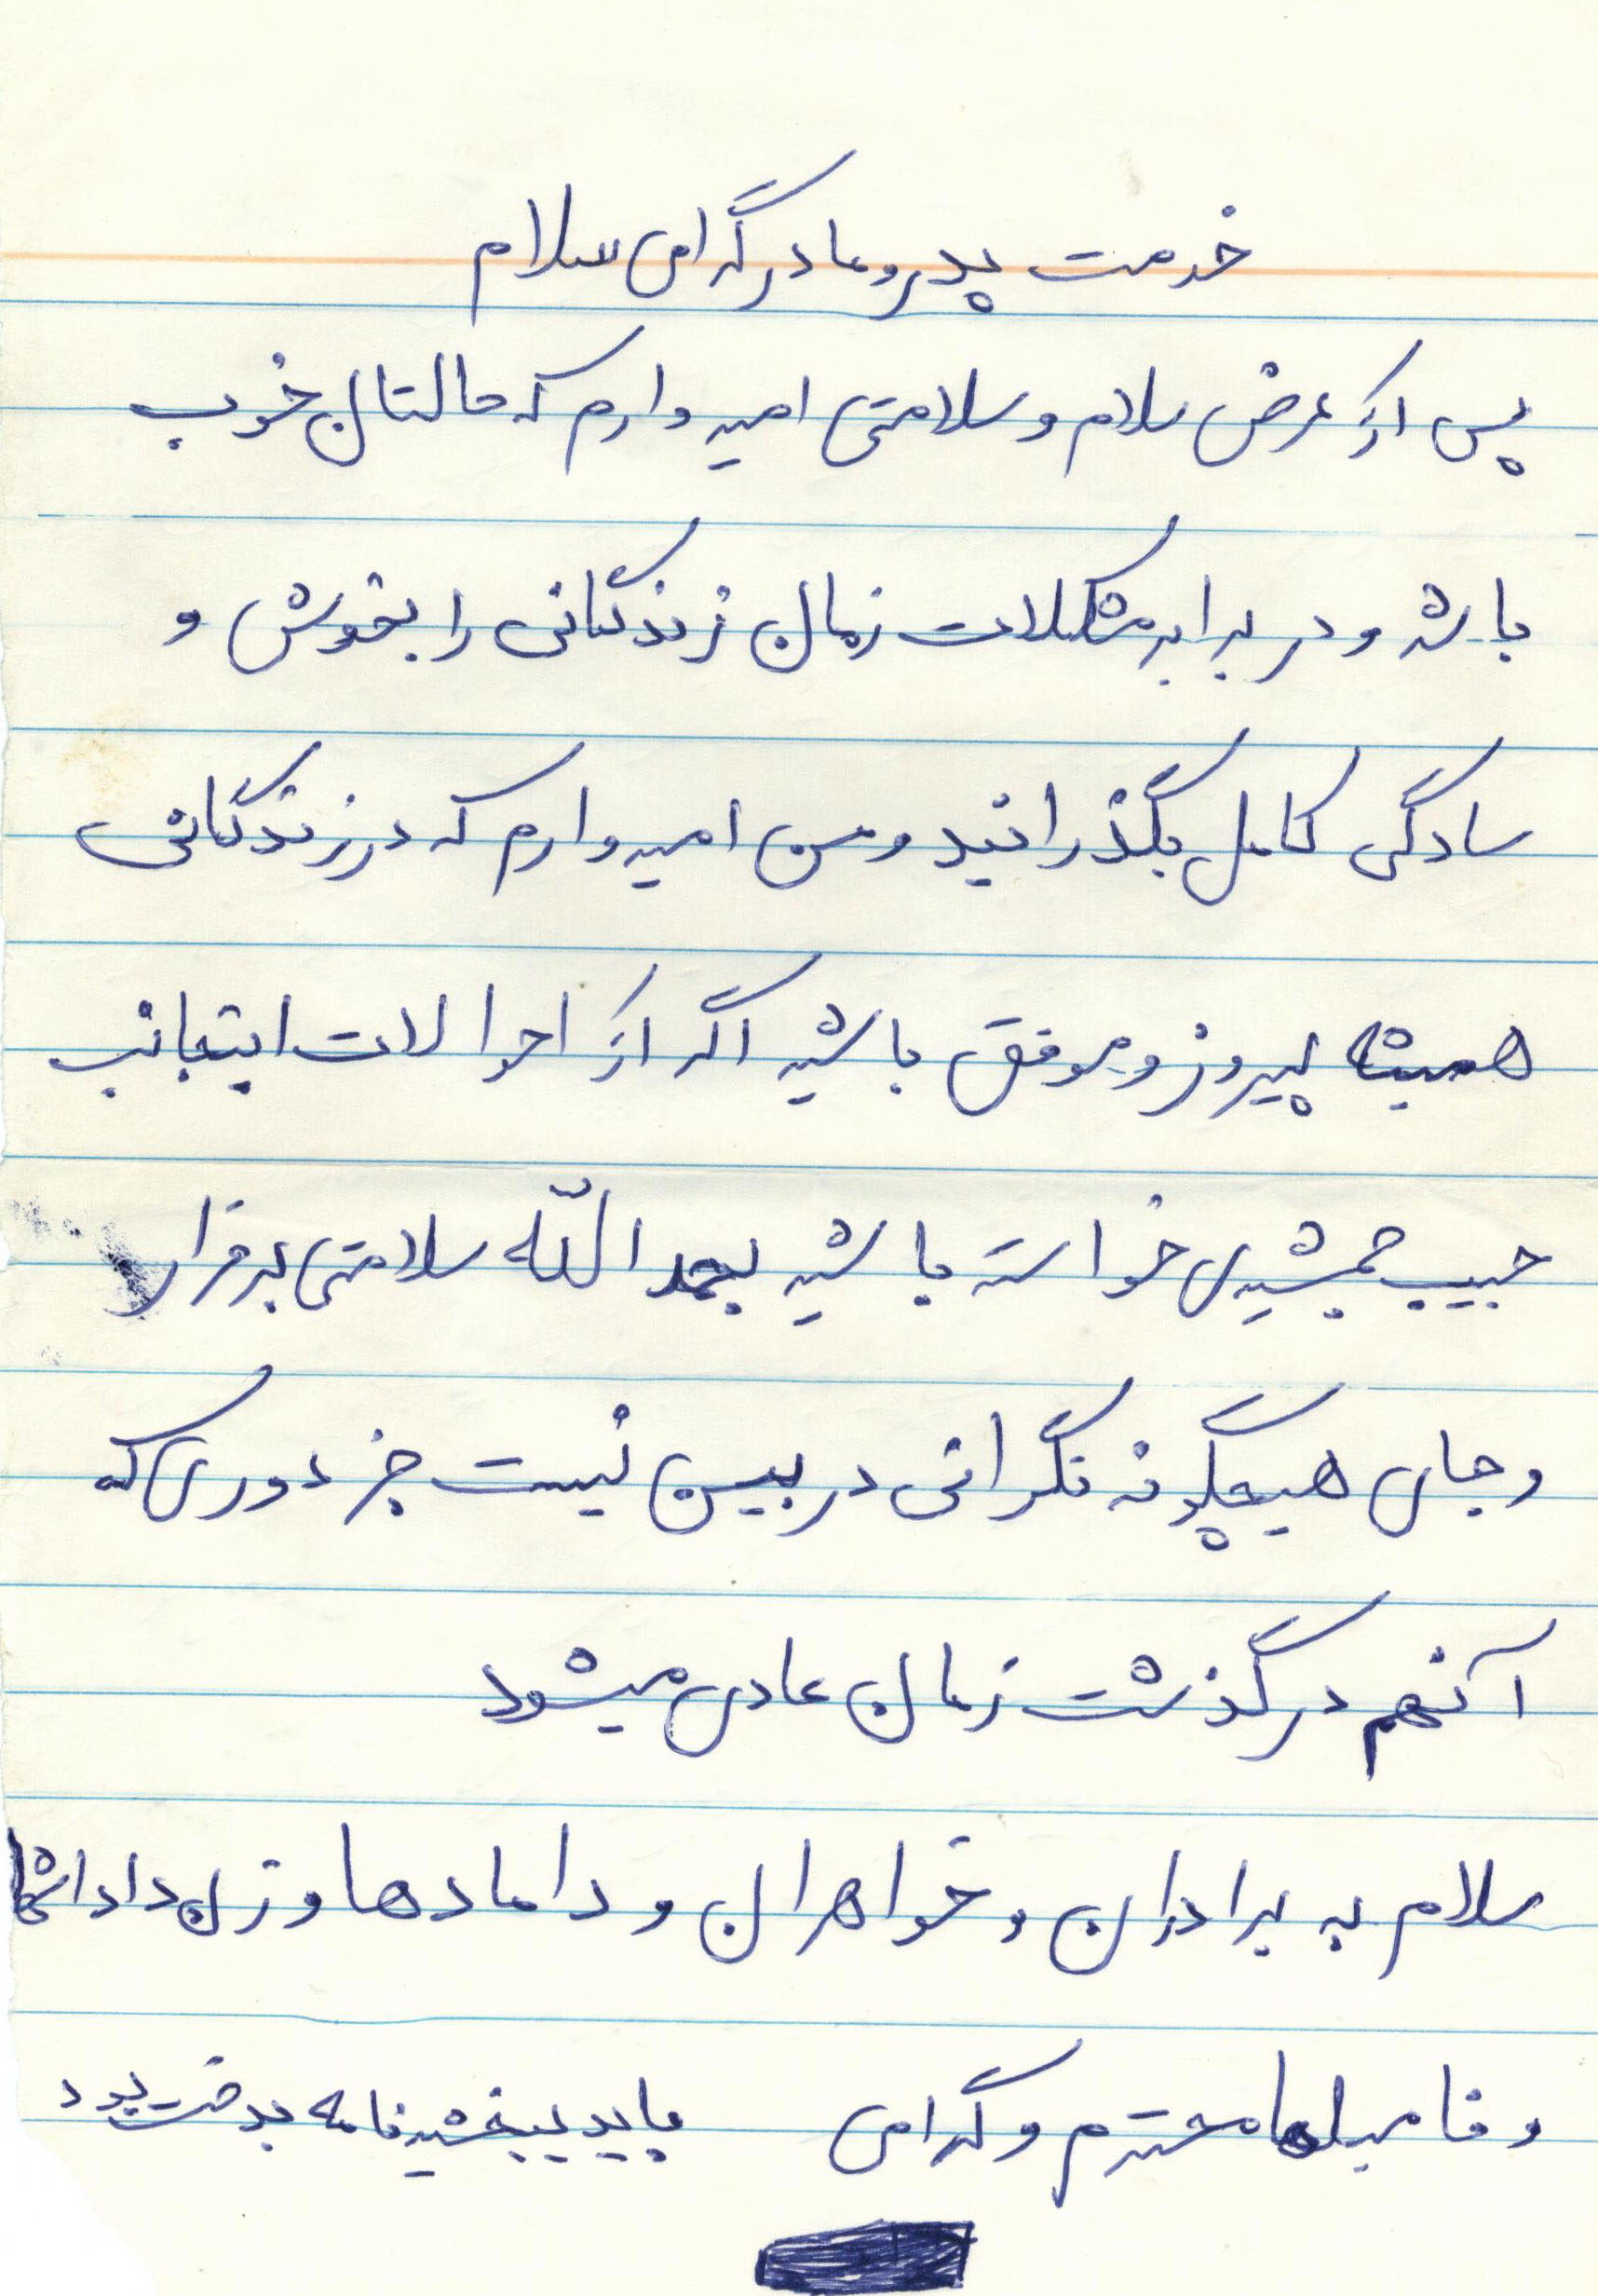 خدمت پدر و مادر گرامی سلام
پس از عرض سلام و سلامتی امیدوارم که حالتان خوب
باشد و در برابر مشکلات زمان زندگانی را بخوش و
سادگی کامل بگذرانید و من امیدوارم که در زندگانی
همیشه پیروز و موفق باشید اگر از احوالات اینجانب
حبیب جمشیدی خواسته باشید بحمدالله سلامتی برقرار
و جای هیچگونه نگرانی در بین نیست جز دوری که
آنهم در گذشت زمان عادی میشود
سلام به برادران و خواهران و دامادها و زن داداشها
و فامیلها محترم و گرامی باید ببخشید نامه بد خت بود